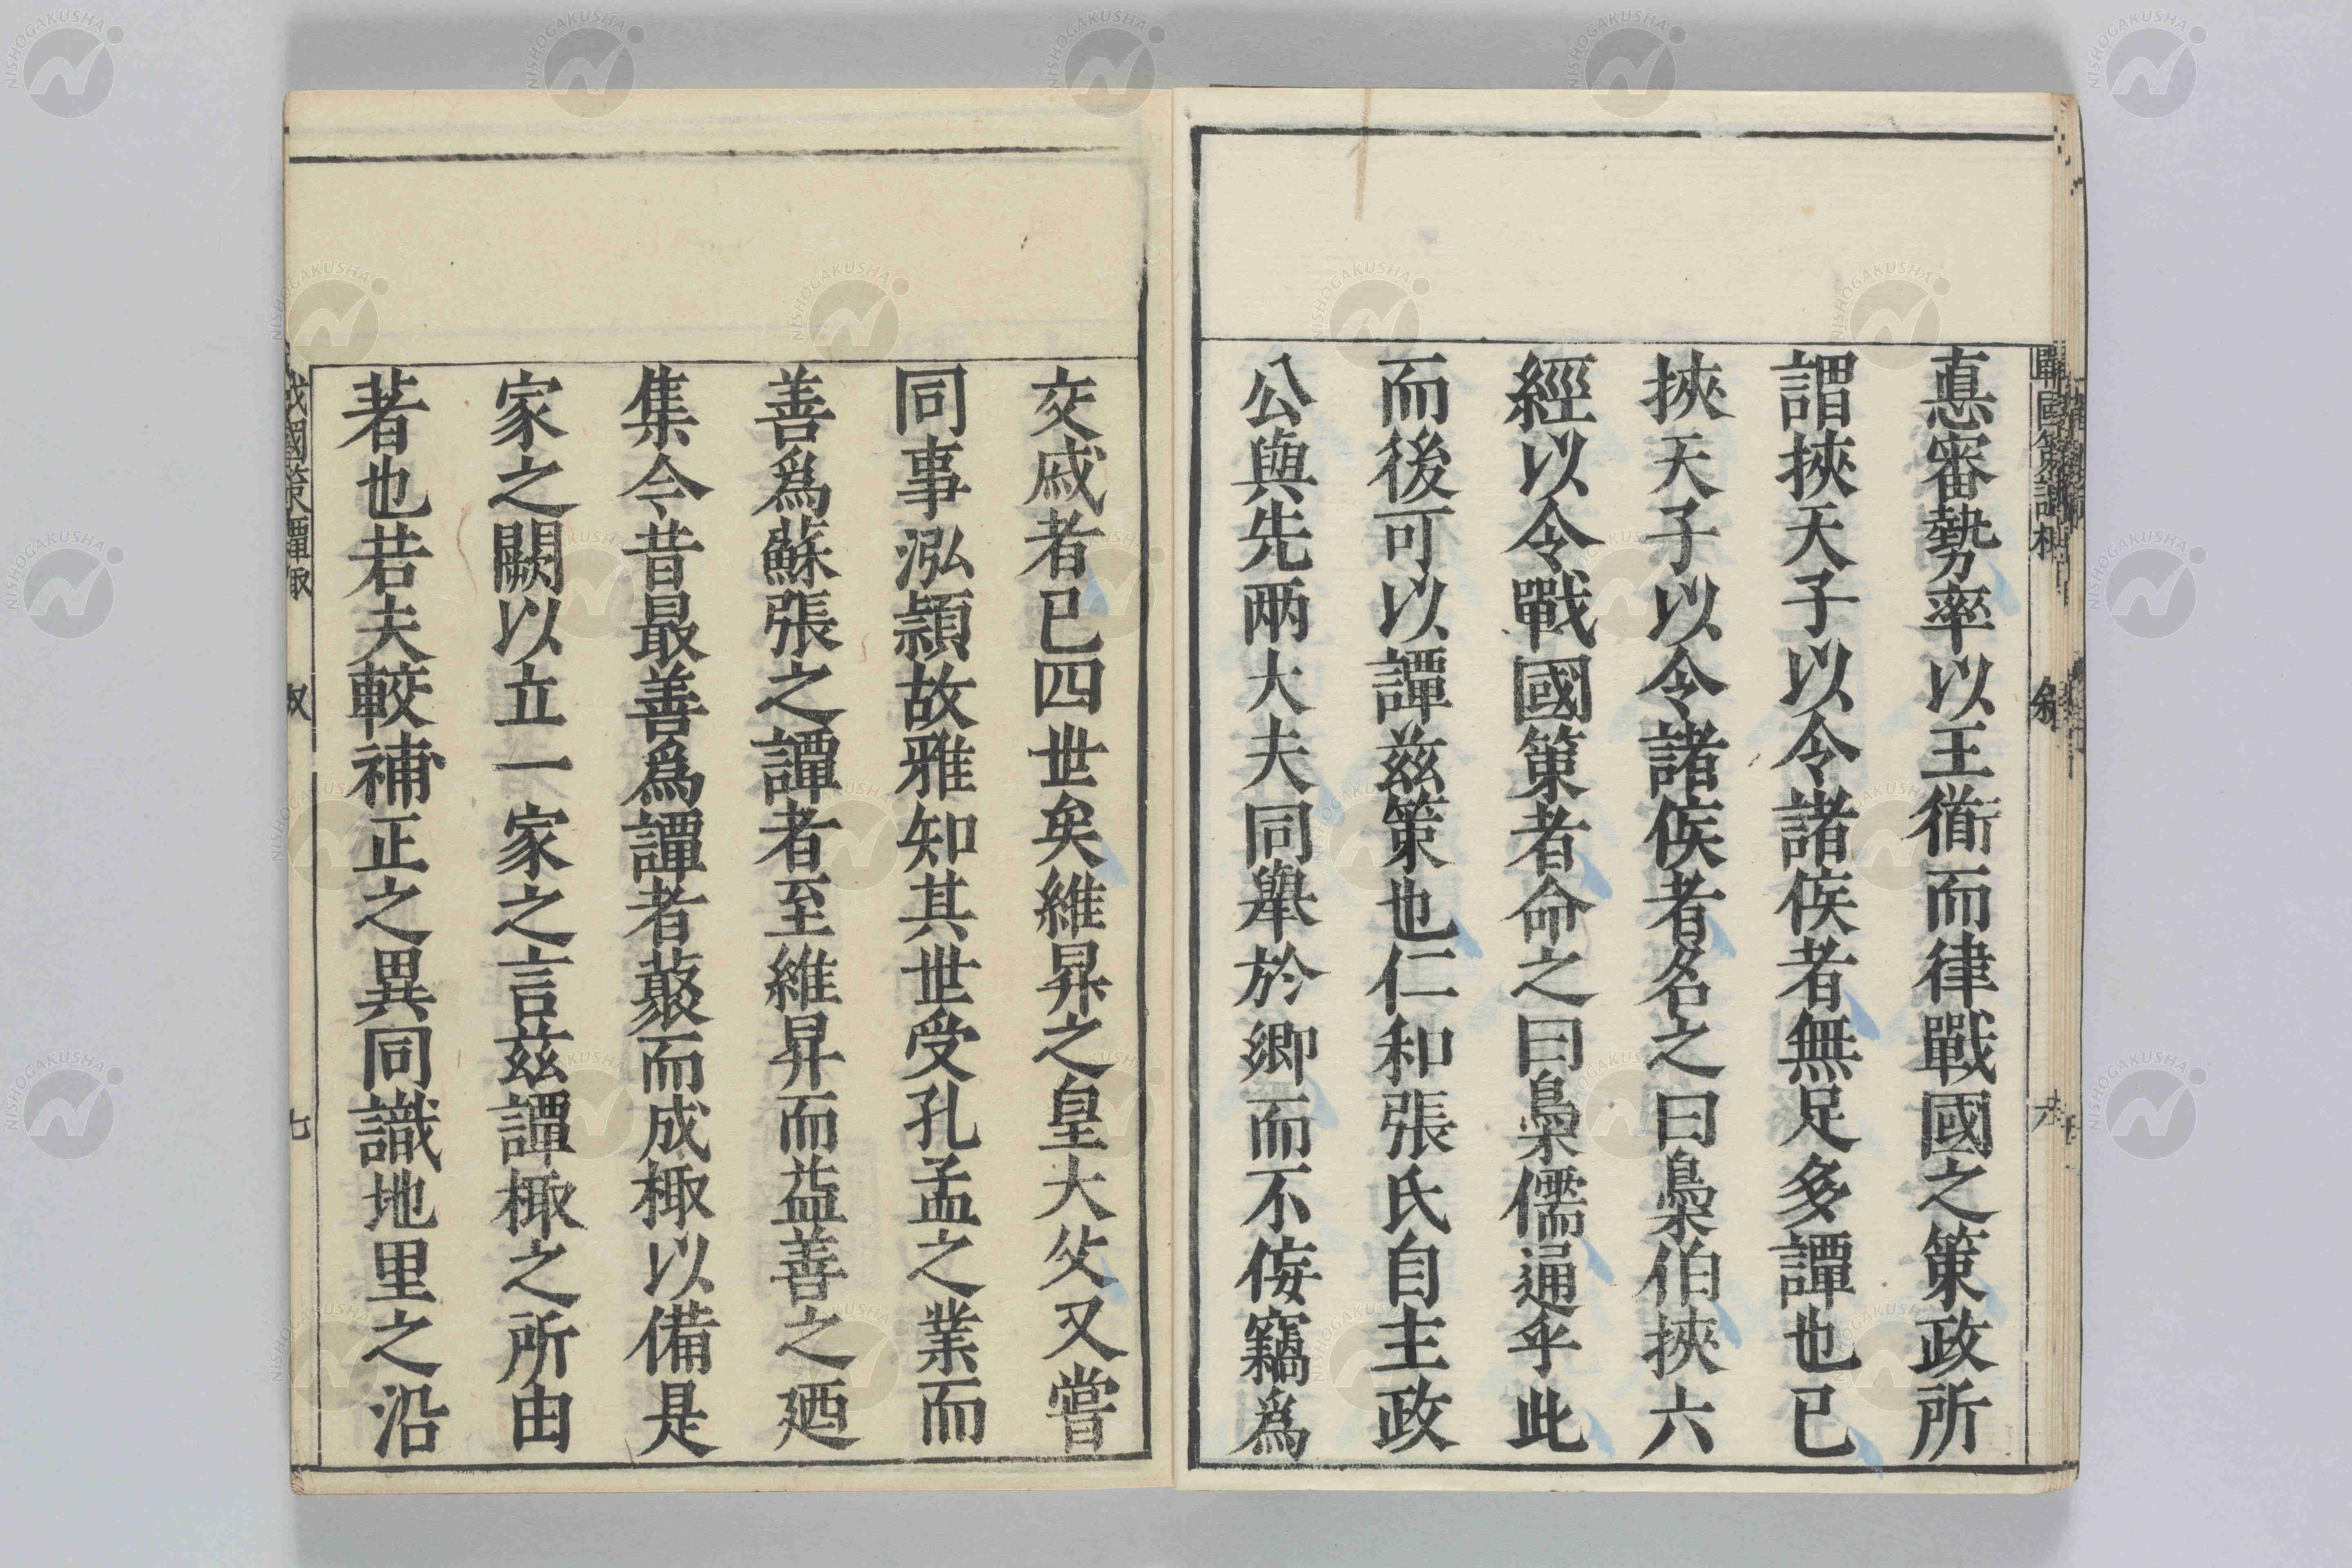 戰國策譚棷
叙
六
惪審勢率以王衜而律戰國之策政所
謂挾天子以令諸侯者無足多譚也已
挾天子以令諸侯者名之曰梟伯挾六
經以令戰國策者命之曰梟儒逼乎此
而後可以譚茲策也仁和張氏自主政
公與先兩大夫同舉於鄉而不侫竊爲
交戚者已四世矣維昇之皇大父又嘗
同事泓潁故雅知其世受孔孟之業而
善爲蘇張之譚者至維昇而益善之廼
集今昔最善爲譚者藂而成棷以備是
家之闕以立一家之言茲譚棷之所由
著也若夫較補正之異同識地里之沿
戰國策譚棷
叙
七
NISHOGAKUSHA